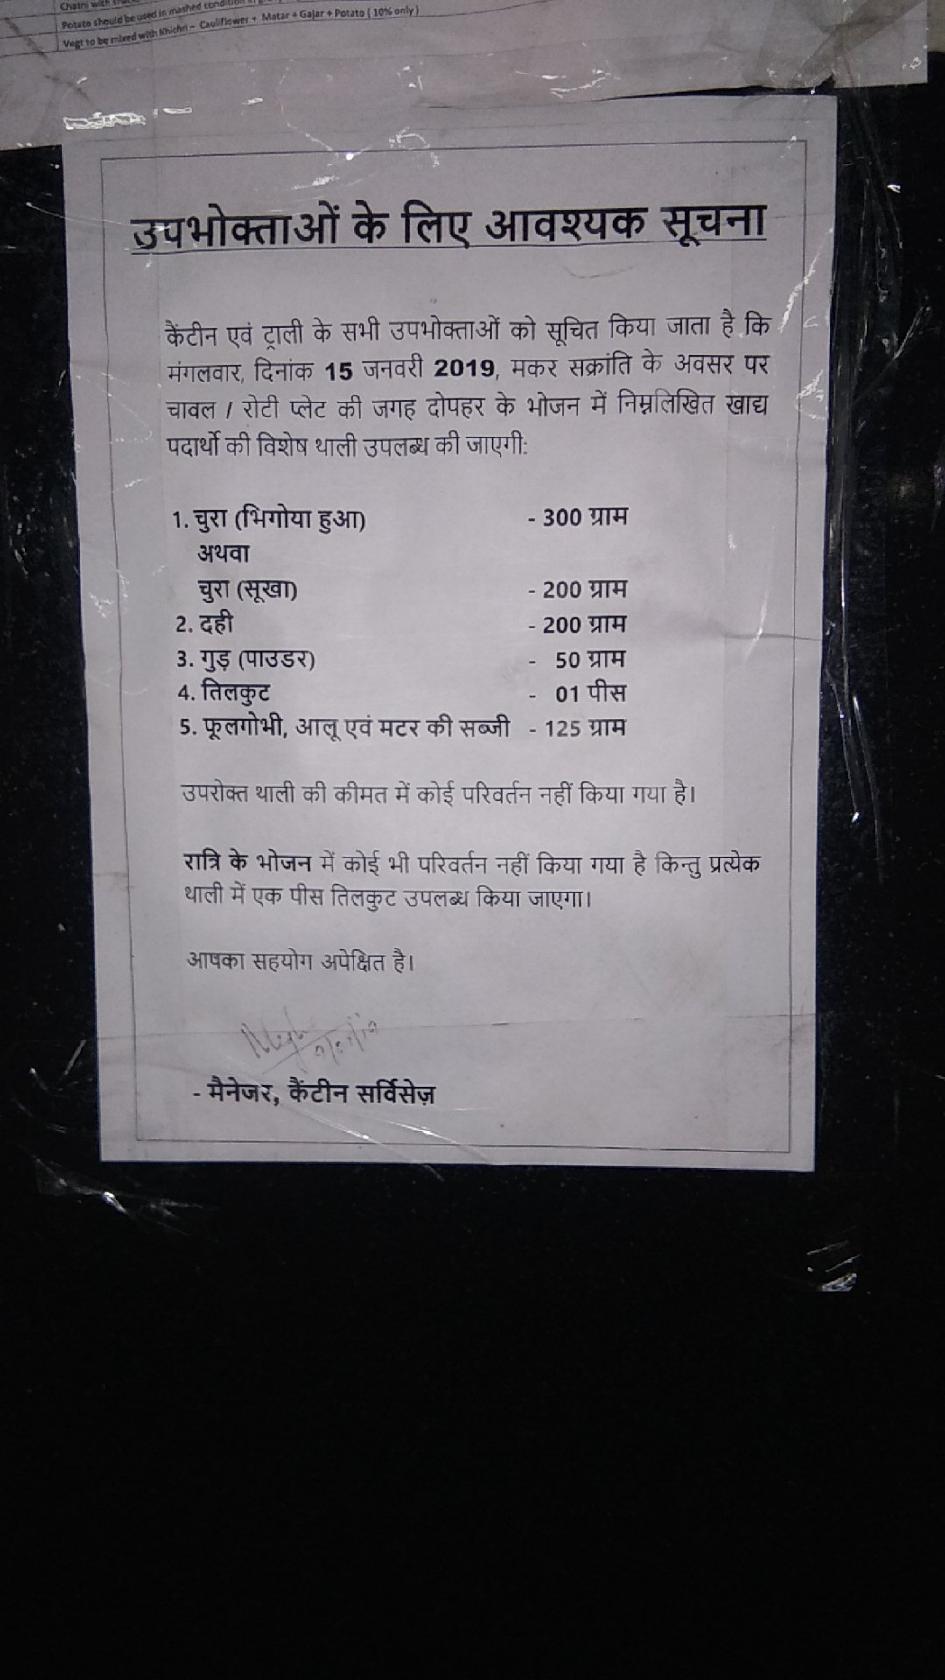 Potato should be used in mashed condition
Vegt to be mixed with Khichri - Cauliflower + Matar + Gajar + Potato ( 10% only )
उपभोक्ताओं के लिए आवश्यक सूचना
कैंटीन एवं ट्राली के सभी उपभोक्ताओं को सूचित किया जाता है कि
मंगलवार, दिनांक 15 जनवरी 2019, मकर सक्रांति के अवसर पर
चावल / रोटी प्लेट की जगह दोपहर के भोजन में निम्नलिखित खाद्य
पदार्थो की विशेष थाली उपलब्ध की जाएगी:
1. चुरा (भिगोया हुआ) - 300 ग्राम
अथवा
चुरा (सूखा) - 200 ग्राम
2. दही - 200 ग्राम
3. गुड़ (पाउडर) - 50 ग्राम
4. तिलकुट - 01 पीस
5. फूलगोभी, आलू एवं मटर की सब्जी - 125 ग्राम
उपरोक्त थाली की कीमत में कोई परिवर्तन नहीं किया गया है।
रात्रि के भोजन में कोई भी परिवर्तन नहीं किया गया है किन्तु प्रत्येक
थाली में एक पीस तिलकुट उपलब्ध किया जाएगा।
आपका सहयोग अपेक्षित है।
- मैनेजर, कैंटीन सर्विसेज़